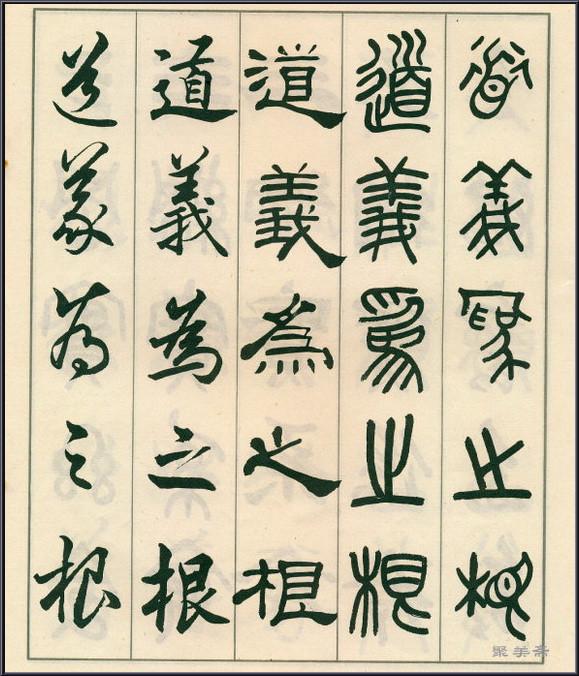 道義為之根
道義為之根
道義為之根
道義為之根
道義為之根
聚美斋